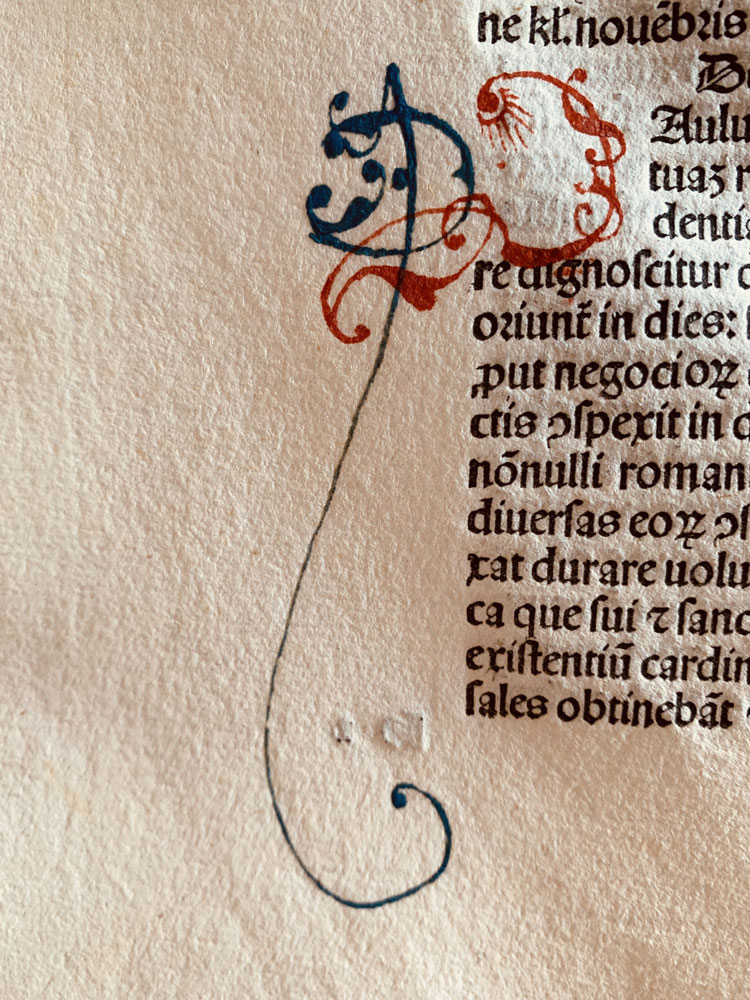 ne kl̃. nouẽbris
Aulu
tuaꝫ
denti
re dignoſcitur
oꝛiunt̃ in dies:
ꝓut negocioꝝ
ctis ꝯſpexit in
nõnulli roman
diuerſas eoꝝ ꝯſ
xat durare uolu
ca que ſui ⁊ ſanc
exiſtentiũ cardin
ſales obtinebãt